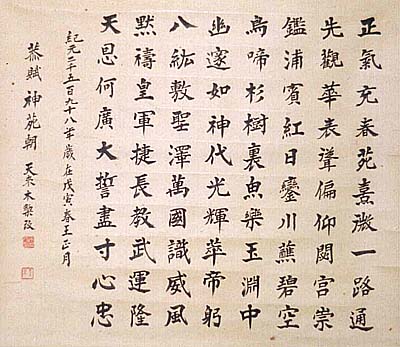 正氣充春苑熹微一路通
先觀華表聳偏仰閟宮崇
鑑浦賓紅日鑾川蘸碧空
鳥啼杉樹裏魚樂玉淵中
幽邃如神代光輝華帝躬
八紘敷聖澤萬國識威風
默禱皇軍捷長教武運隆
天恩何廣大誓盡寸心忠
紀元二千五百九十八年歲在戊寅春王正月
恭賦神苑朝 天來木